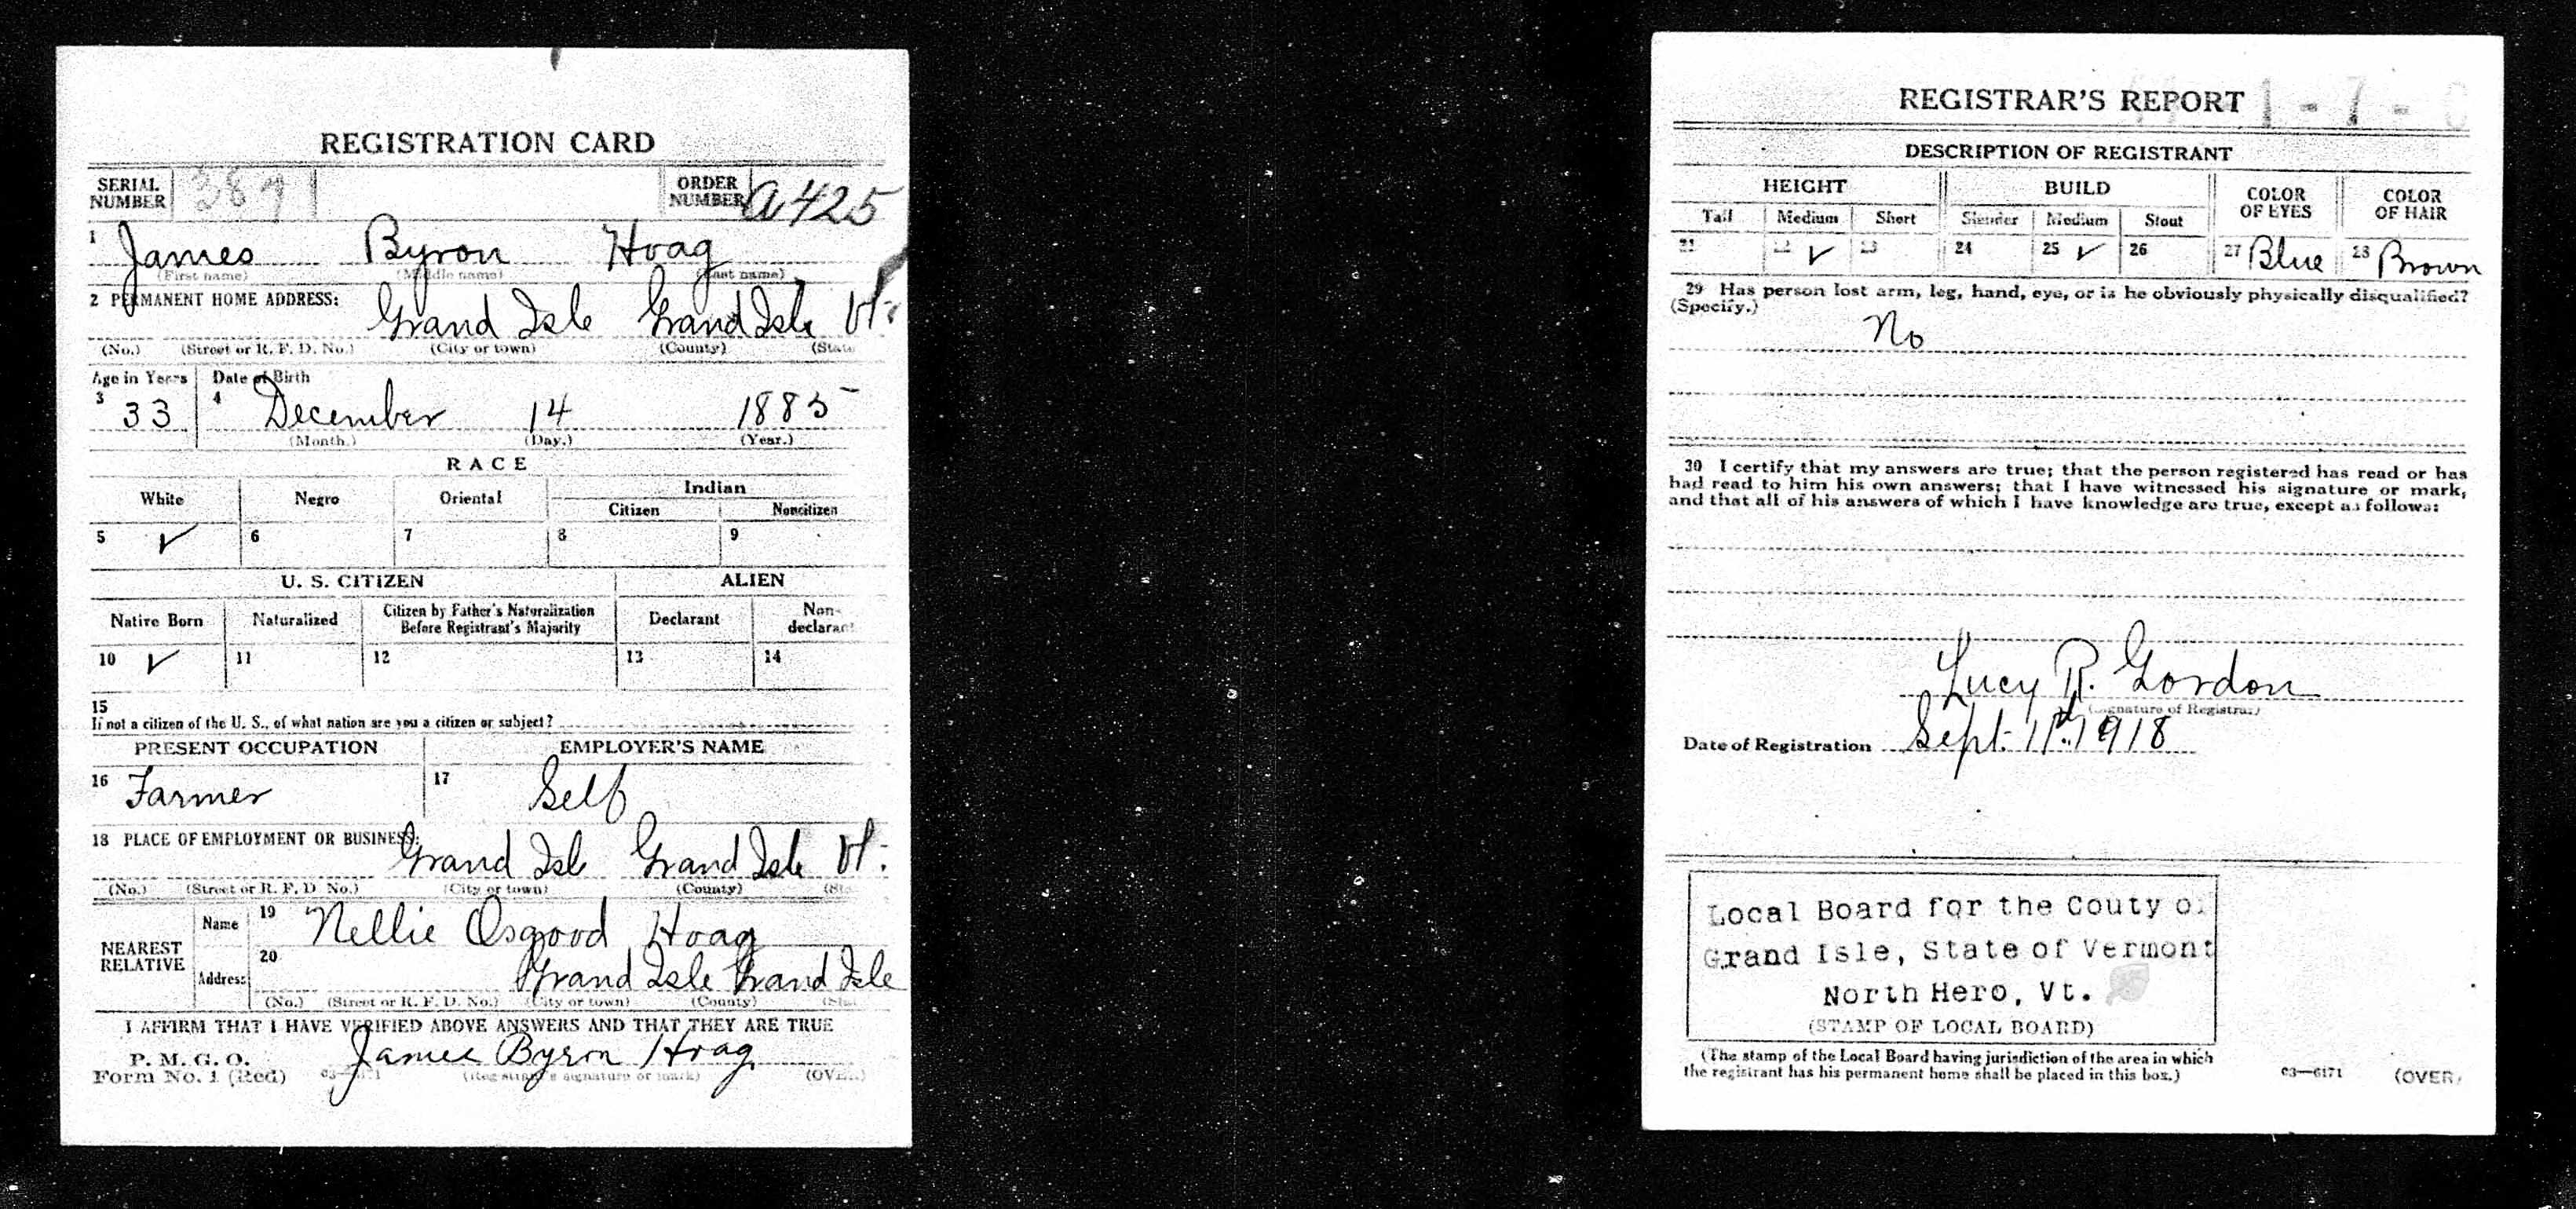 REGISTRATION CARD
SERIAL NUMBER 389 ORDER NUMBER a 425
1 James Byron Hoag
(First name) (Middle name) (Last name)
2 PERMANENT HOME ADDRESS:
Grand Isle Grand Isle Vt.
(No.) (Street or R. F. D. No.) (City or town) (County) (State
Age in Years Date of Birth
3 33 4 December 14 1885
(Month.) (Day.) (Year.)
RACE
White Negro Oriental Indian
Citizen Noncitizen
5 ✓ 6 7 8 9
U. S. CITIZEN ALIEN
Native Born Naturalized Citizen by Father's Naturalization Before Registrant's Majority Declarant Non-declarant
10 ✓ 11 12 13 14
15
If not a citizen of the U. S., of what nation are you a citizen or subject?
PRESENT OCCUPATION EMPLOYER'S NAME
16 Farmer 17 Self
18 PLACE OF EMPLOYMENT OR BUSINESS:
Grand Isle Grand Isle Vt.
(No.) (Street or R. F. D. No.) (City or town) (County)
NEAREST RELATIVE Name 19 Nellie Osgood Hoag
Address 20 Grand Isle Grand Isle
(No.) (Street or R. F. D. No.) (City or town) (County)
I AFFIRM THAT I HAVE VERIFIED ABOVE ANSWERS AND THAT THEY ARE TRUE
P. M. G. O.
Form No. 1 (Red) James Byron Hoag
(Registrant's signature or mark) (OVER)
REGISTRAR'S REPORT 1-7-
DESCRIPTION OF REGISTRANT
HEIGHT BUILD COLOR OF EYES COLOR OF HAIR
Tall Medium Short Slender Medium Stout
21 22 ✓ 23 24 25 ✓ 26 27 Blue 28 Brown
29 Has person lost arm, leg, hand, eye, or is he obviously physically disqualified?
(Specify.)
No
30 I certify that my answers are true; that the person registered has read or has
had read to him his own answers; that I have witnessed his signature or mark,
and that all of his answers of which I have knowledge are true, except as follows:
Lucy R. Gordon
(Signature of Registrar)
Date of Registration Sept. 1918
Local Board for the Couty of
Grand Isle, State of Vermont
North Hero, Vt.
(STAMP OF LOCAL BOARD)
(The stamp of the Local Board having jurisdiction of the area in which
the registrant has his permanent home shall be placed in this box.)
03—6171 (OVER)